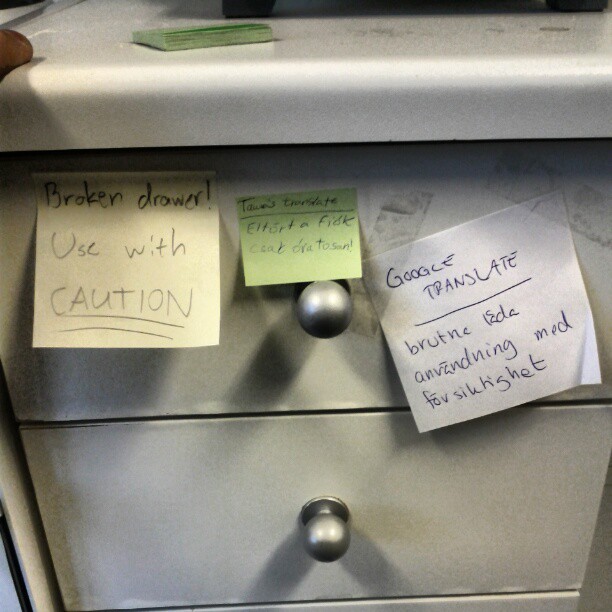 Broken drawer!
Use with
CAUTION
translate
Eltört a Fiók
csak óvatosan!
GOOGLE
TRANSLATE
brutna låda
användning med
försiktighet